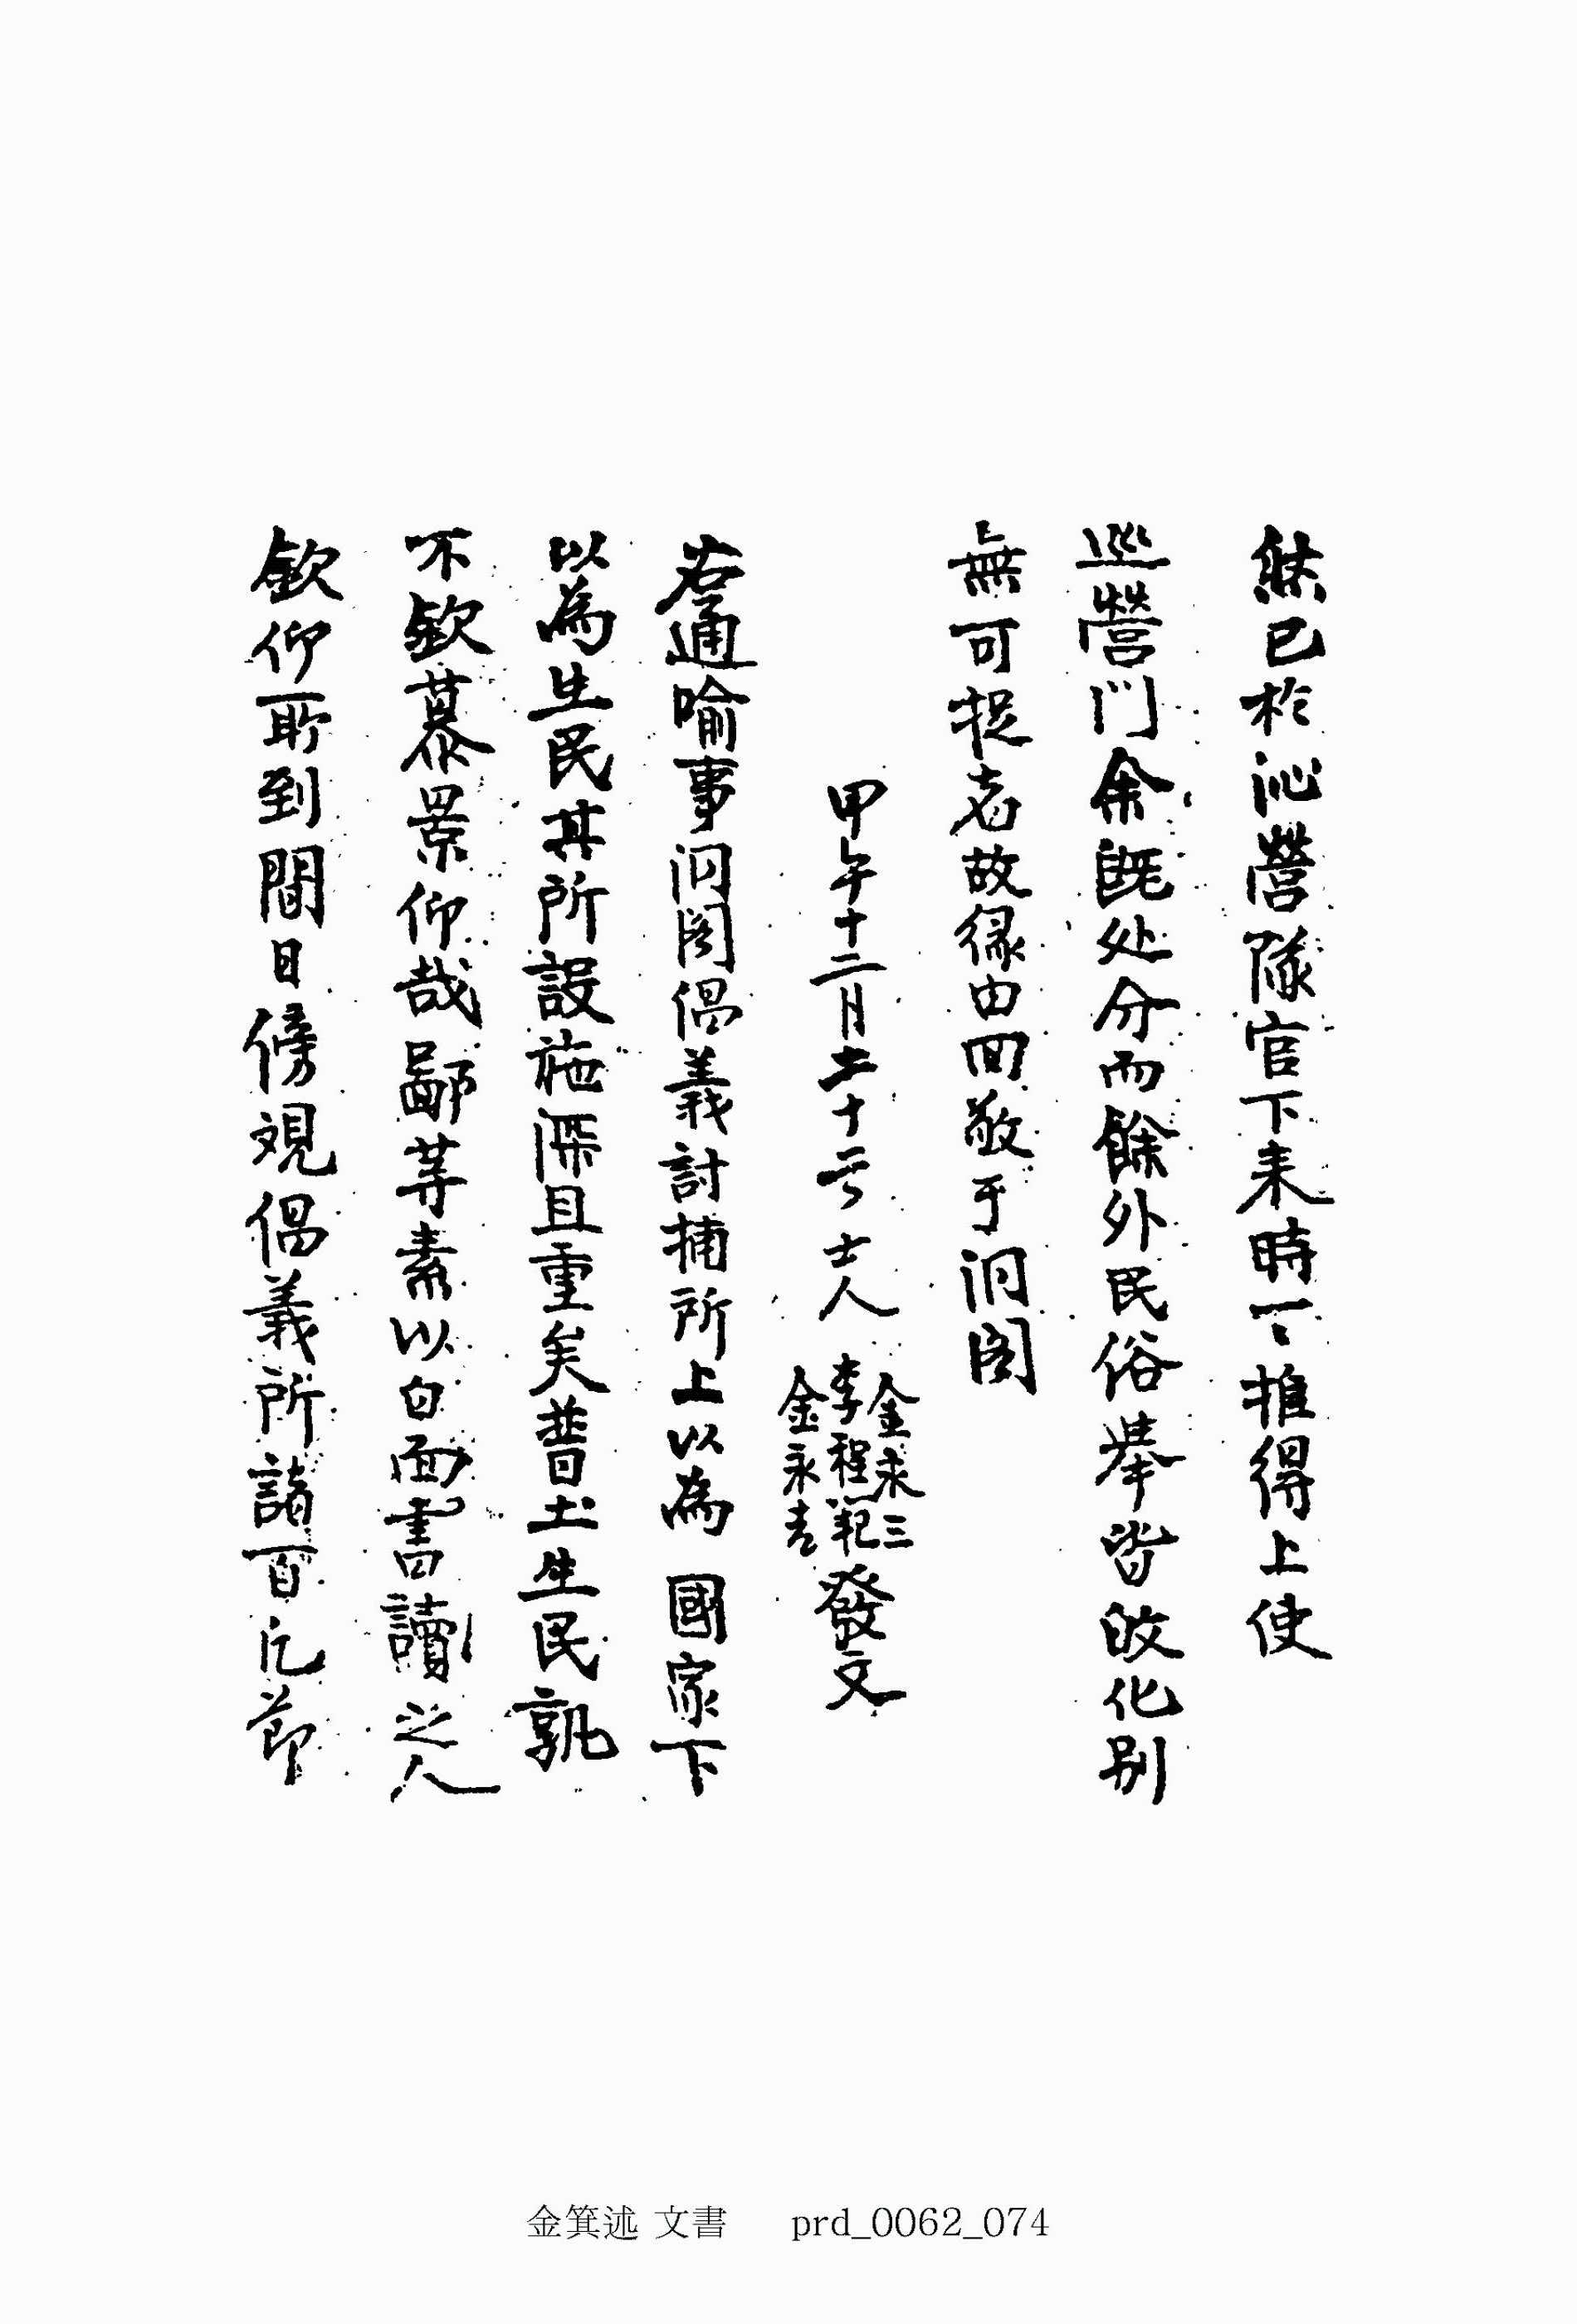 然已於沁營隊官下来時一〻推得上使
巡營門余旣处分而餘外民俗擧皆攺化别
無可捉者故緣由回敬于洞閤
甲午十二月二十二 士人 金永三 李程範 金永吉 發文
右通喻事洞閤倡義討捕所上以爲 國家下
以爲生民其所設施深且重矣普土生民孰
不欽慕景仰哉鄙等素以白面書讀之人
欽仰所到間日傍覌倡義所諸百凡節
金箕述 文書 prd_0062_074